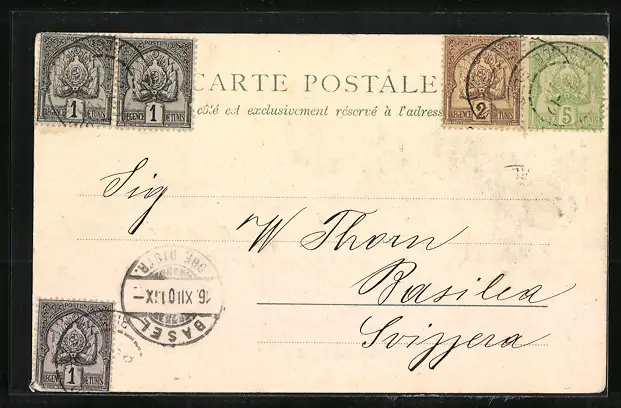 POSTES POSTES
1 1
RÉGENCE DE TUNIS RÉGENCE DE TUNIS
2 5
RÉGENCE DE TUNIS RÉGENCE DE TUNIS
CARTE POSTALE
côté est exclusivement réservé à l'adress
Sig
W Thorn
Basilea
Svizzera
BRF. DISTR.
16. XII. 01. IX–
BASEL
1
RÉGENCE DE TUNIS